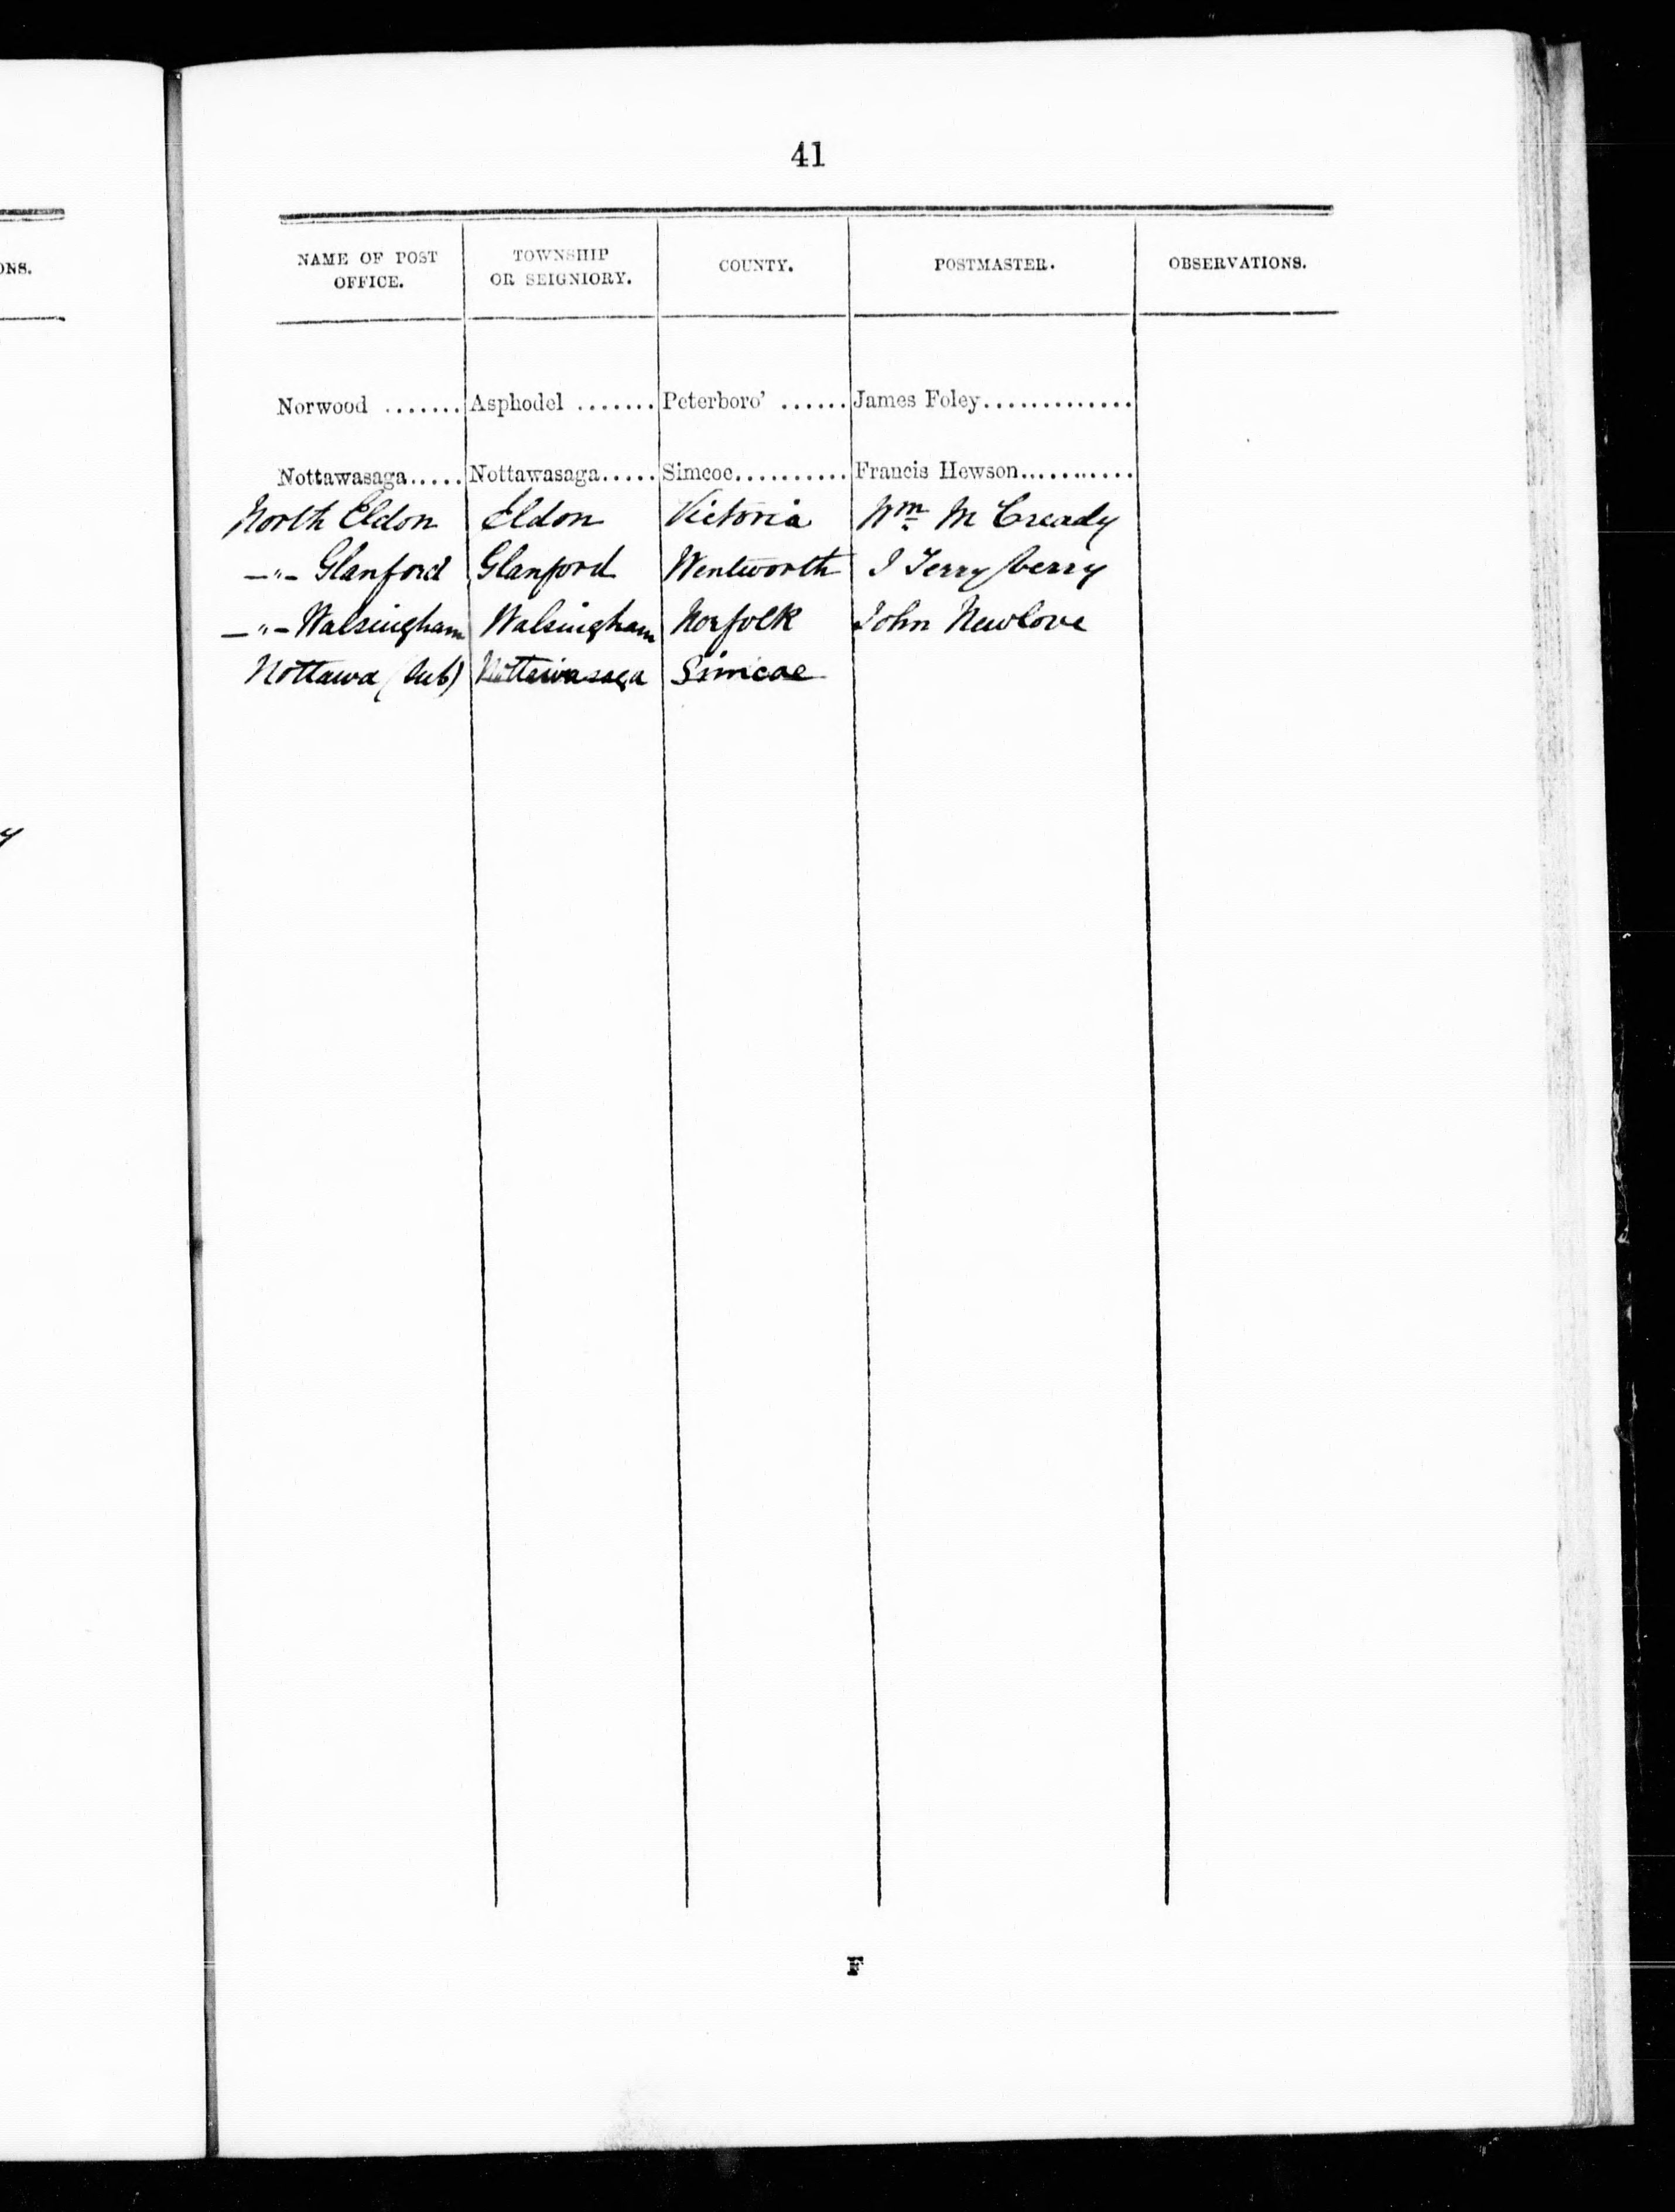 41
NAME OF POST OFFICE. TOWNSHIP OR SEIGNIORY. COUNTY. POSTMASTER. OBSERVATIONS.
Norwood ....... Asphodel ....... Peterboro' ...... James Foley.............
Nottawasaga..... Nottawasaga..... Simcoe.......... Francis Hewson...........
North Eldon Eldon Victoria Wm McCready
—"— Glanford Glanford Wentworth J Terryberry
—"— Walsingham Walsingham Norfolk John Newlove
Nottawa (Sub) Nottawasaga Simcoe
F
ONS.